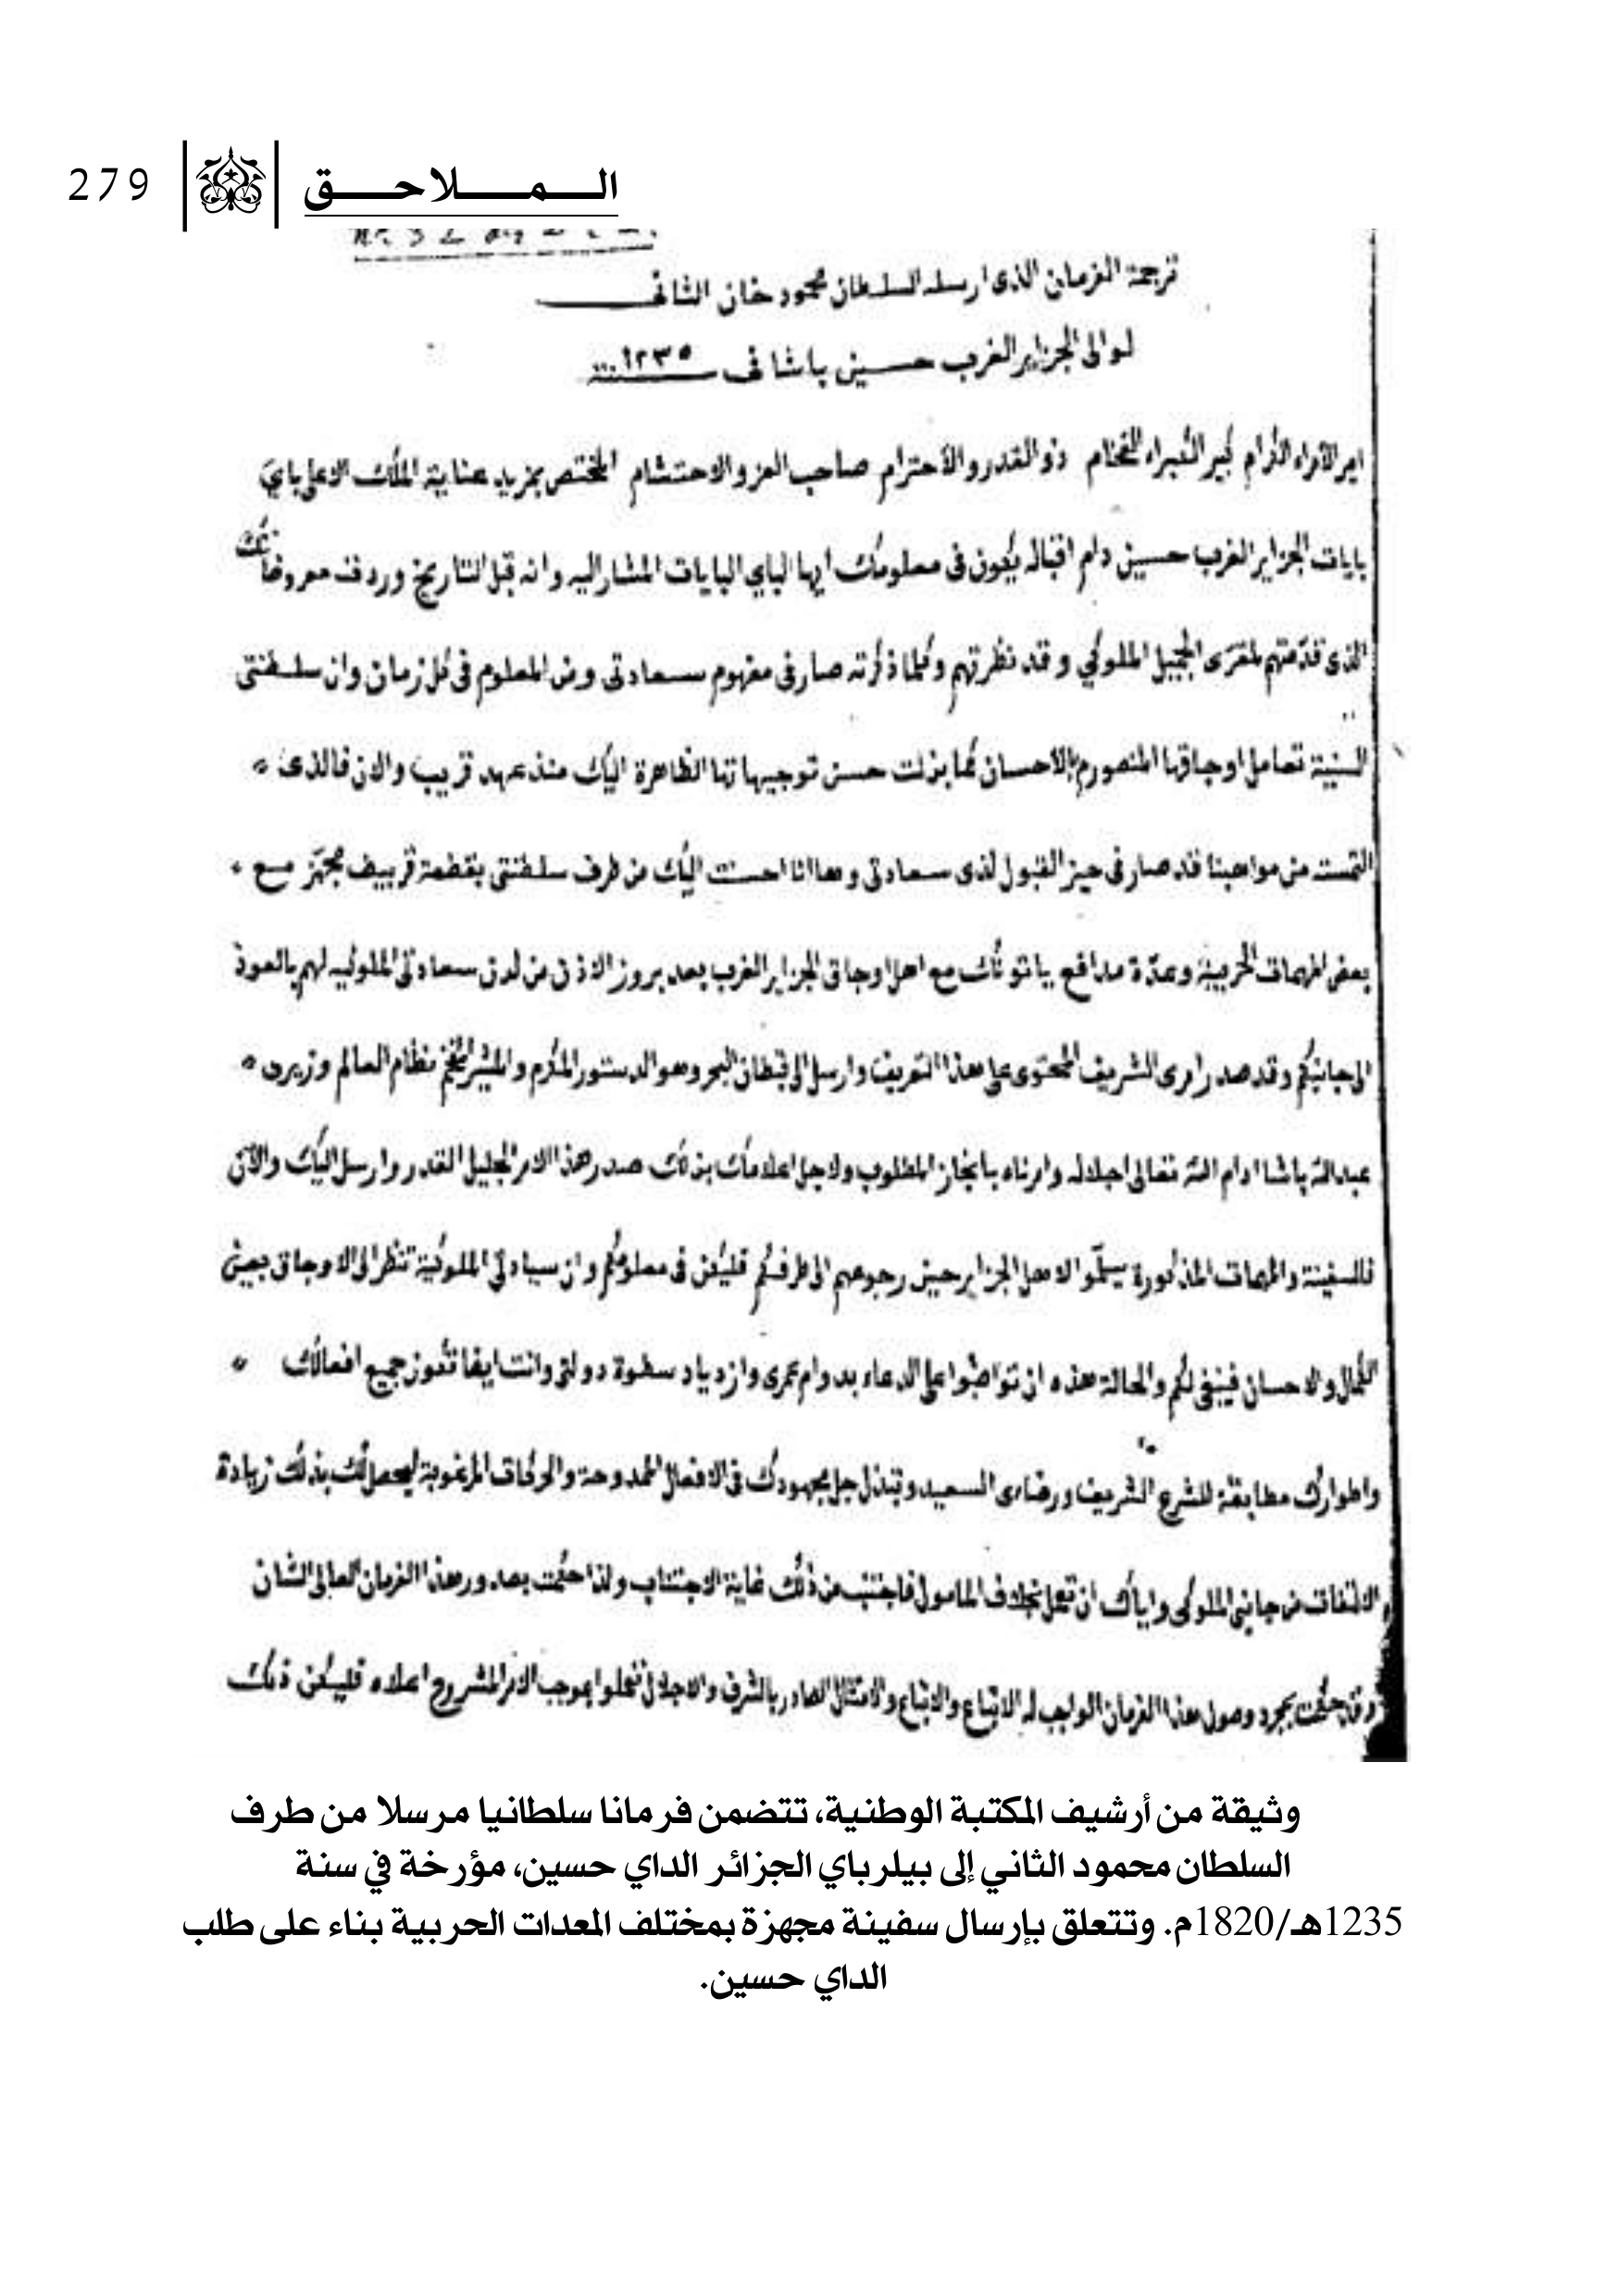 279 الـمـلاحـق
ترجمة الفرمان الذى ارسله السلطان محمود خان الثانى
لوالى الجزاير الغرب حسين باشا فى ١٢٣٥
امير الامراء الكرام كبير الكبراء الفخام ذو القدر والاحترام صاحب العز والاحتشام المختص بمزيد عناية الملك الاعلى باي
بايات الجزاير الغرب حسين دام اقباله يكون فى معلومك ايها الباي البايات المشار اليه وانه قبل التاريخ وردت معروضاتك
الذى قدمتهم لمقرى الجميل الملوكي وقد نظرتهم وكلما ذكرته صار فى مفهوم سعادتى ومن المعلوم فى كل زمان وان سلطنتى
السنية تعامل اوجاقها المنصورة بالاحسان كما بذلت حسن توجيهاتنا الظاهرة اليك منذ عهد قريب والان فالذى
التمست من مواهبنا قد صار فى حيز القبول لدى سعادتى وها انا احسنت اليك من طرف سلطنتى بقطعة قربيت مجهز مع
بعض المهمات الحربية وعدة مدافع ياتوتك مع اهل اوجاق الجزاير الغرب بعد بروز الاذن من لدن سعادتى الملوكيه لهم بالعود
الى جانبكم وقد صدر امرى الشريف المحتوى على هذا التعريف وارسل الى قبطان البحر وهو الدستور المكرم والمشير المفخم نظام العالم وزيرى
عبدالله پاشا ادام الله تعالى اجلاله وامرناه بانجاز المطلوب ولاجل اعلامك بذلك صدر هذا الامر الجليل القدر وارسل اليك والآن
فالسفينة والمهمات المذكورة يسلموا لاهل الجزاير حين رجوعهم الى طرفكم فليكن فى معلومكم وان سيادتي الملوكية تنظر الى الاوجاق بعين
الكمال والاحسان فينبغى لكم والحالة هذه ان تواظبوا على الدعاء بدوام عمرى وازدياد سطوة دولتى وانت ايضا تكون جميع افعالك
واطوارك مطابقة للشرع الشريف ورضاى السعيد وتبذل جل مجهودك فى الافعال الممدوحة والحركات المرغوبة ليحصل لك بذلك زيادة
الالتفات من جانبى الملوكى واياك ان تعمل بخلاف المامول فاجتنب من ذلك غاية الاجتناب ولذا حكمت بصدور هذا الفرمان العالى الشان
وقد حكمت بمجرد وصول هذا الفرمان الواجب له الاتباع والامتثال الصادر بالشرف والاجلال تعملوا بموجب الامر المشروح اعلاه فليكن ذلك
وثيقة من أرشيف المكتبة الوطنية، تتضمن فرمانا سلطانيا مرسلا من طرف
السلطان محمود الثاني إلى بيلرباي الجزائر الداي حسين، مؤرخة في سنة
1235هـ/1820م. وتتعلق بإرسال سفينة مجهزة بمختلف المعدات الحربية بناء على طلب
الداي حسين.